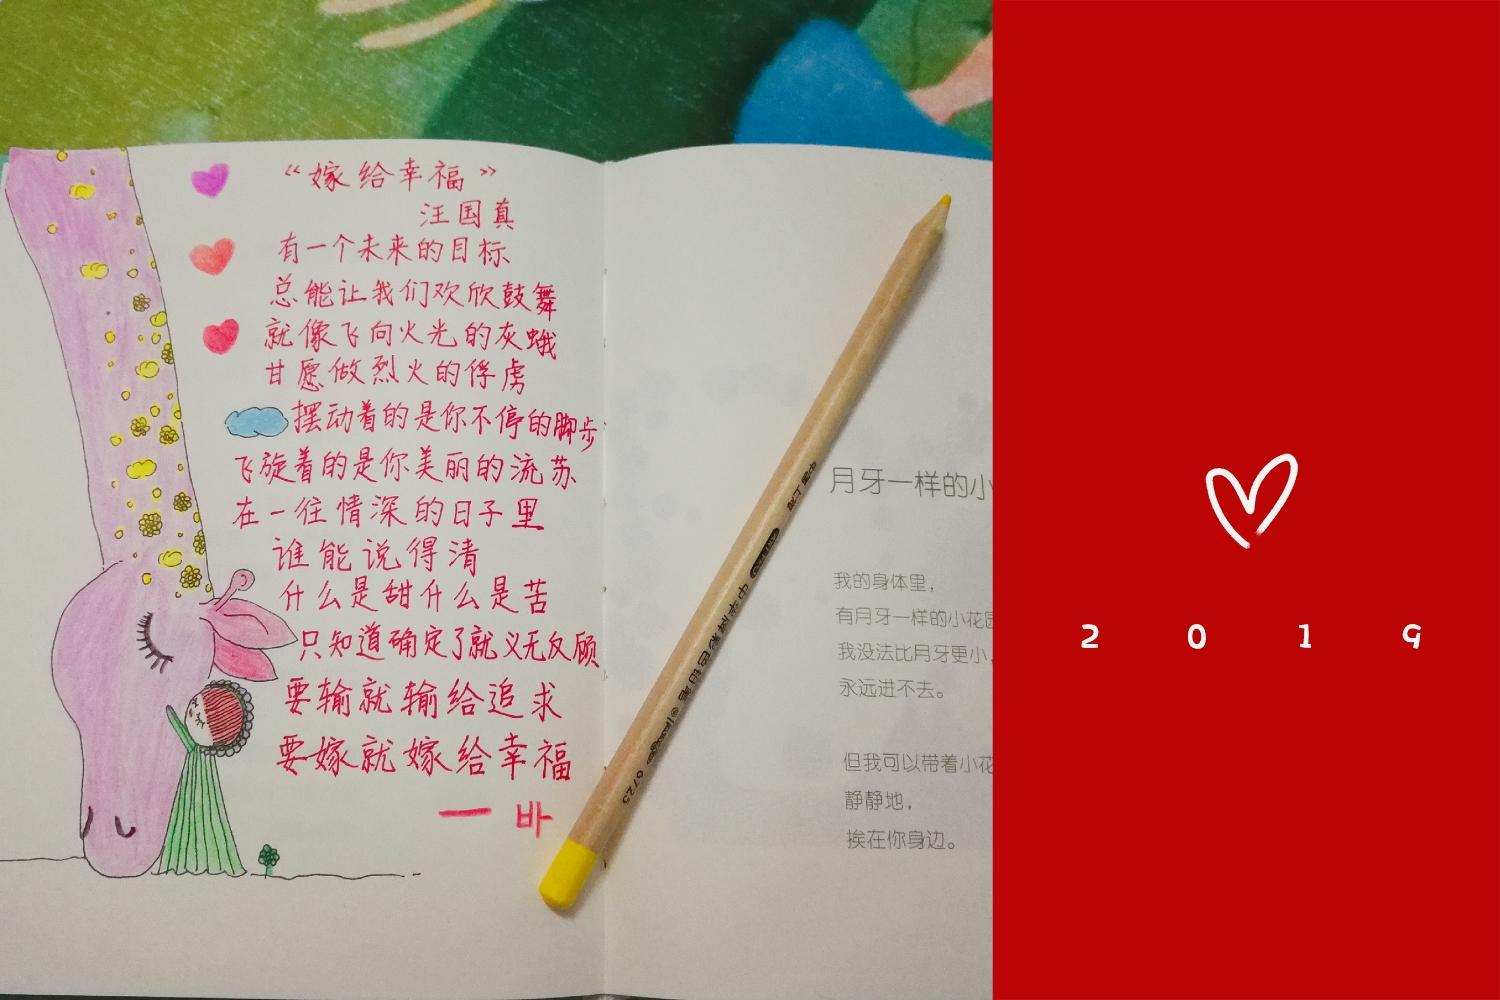 “嫁给幸福”
汪国真
有一个未来的目标
总能让我们欢欣鼓舞
就像飞向火光的灰蛾
甘愿做烈火的俘虏
摆动着的是你不停的脚步
飞旋着的是你美丽的流苏
在一往情深的日子里
谁能说得清
什么是甜什么是苦
只知道确定了就义无反顾
要输就输给追求
要嫁就嫁给幸福
一 바
月牙一样的小
我的身体里，
有月牙一样的小花园
我没法比月牙更小，
永远进不去。
但我可以带着小花
静静地，
挨在你身边。
中国上海
中华牌彩色铅笔
6725
2 0 1 9